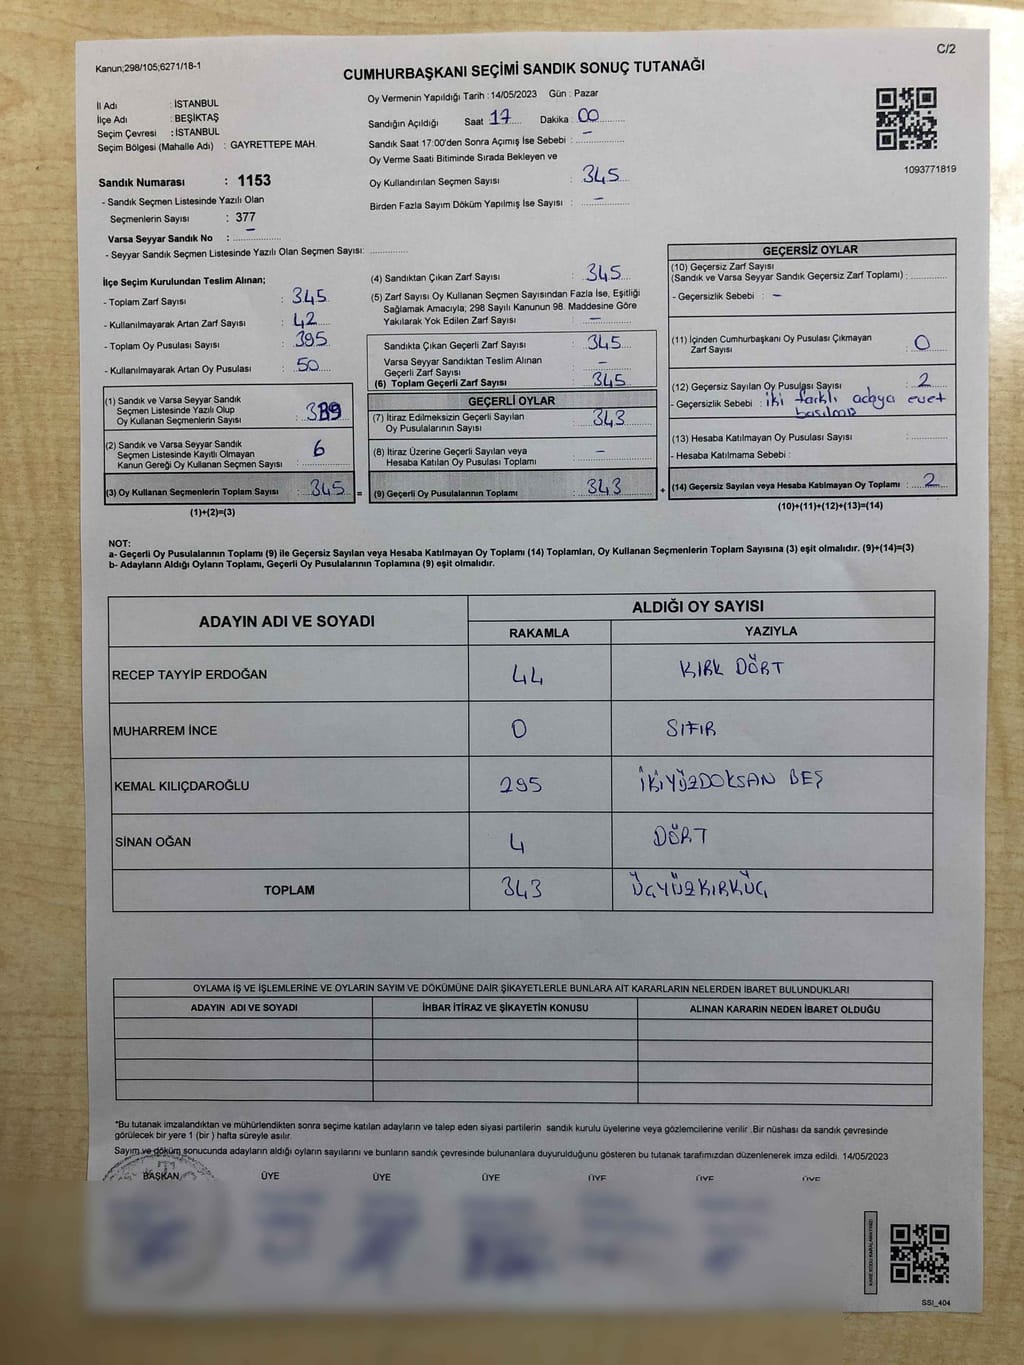 C/2
Kanun;298/105;6271/18-1
CUMHURBAŞKANI SEÇİMİ SANDIK SONUÇ TUTANAĞI
İl Adı : İSTANBUL
İlçe Adı : BEŞİKTAŞ
Seçim Çevresi : İSTANBUL
Seçim Bölgesi (Mahalle Adı) : GAYRETTEPE MAH.
Sandık Numarası : 1153
- Sandık Seçmen Listesinde Yazılı Olan
Seçmenlerin Sayısı : 377
Varsa Seyyar Sandık No : –
- Seyyar Sandık Seçmen Listesinde Yazılı Olan Seçmen Sayısı: ............
Oy Vermenin Yapıldığı Tarih : 14/05/2023 Gün : Pazar
Sandığın Açıldığı Saat 17 Dakika 00
Sandık Saat 17:00'den Sonra Açımış İse Sebebi : –
Oy Verme Saati Bitiminde Sırada Bekleyen ve
Oy Kullandırılan Seçmen Sayısı : 345
Birden Fazla Sayım Döküm Yapılmış İse Sayısı : –
1093771819
İlçe Seçim Kurulundan Teslim Alınan;
- Toplam Zarf Sayısı : 345
- Kullanılmayarak Artan Zarf Sayısı : 42
- Toplam Oy Pusulası Sayısı : 395
- Kullanılmayarak Artan Oy Pusulası : 50
(1) Sandık ve Varsa Seyyar Sandık
Seçmen Listesinde Yazılı Olup
Oy Kullanan Seçmenlerin Sayısı :
(2) Sandık ve Varsa Seyyar Sandık
Seçmen Listesinde Kayıtlı Olmayan
Kanun Gereği Oy Kullanan Seçmen Sayısı : 6
(3) Oy Kullanan Seçmenlerin Toplam Sayısı : 345 =
(1)+(2)=(3)
(4) Sandıktan Çıkan Zarf Sayısı : 345
(5) Zarf Sayısı Oy Kullanan Seçmen Sayısından Fazla İse, Eşitliği
Sağlamak Amacıyla; 298 Sayılı Kanunun 98. Maddesine Göre
Yakılarak Yok Edilen Zarf Sayısı : –
Sandıkta Çıkan Geçerli Zarf Sayısı : 345
Varsa Seyyar Sandıktan Teslim Alınan
Geçerli Zarf Sayısı : –
(6) Toplam Geçerli Zarf Sayısı : 345
GEÇERLİ OYLAR
(7) İtiraz Edilmeksizin Geçerli Sayılan
Oy Pusulalarının Sayısı : 343
(8) İtiraz Üzerine Geçerli Sayılan veya
Hesaba Katılan Oy Pusulası Toplamı : –
(9) Geçerli Oy Pusulalarının Toplamı : 343 +
GEÇERSİZ OYLAR
(10) Geçersiz Zarf Sayısı
(Sandık ve Varsa Seyyar Sandık Geçersiz Zarf Toplamı) : ............
- Geçersizlik Sebebi : –
(11) İçinden Cumhurbaşkanı Oy Pusulası Çıkmayan
Zarf Sayısı : 0
(12) Geçersiz Sayılan Oy Pusulası Sayısı : 2
- Geçersizlik Sebebi : iki farklı adaya evet
basılmış
(13) Hesaba Katılmayan Oy Pusulası Sayısı : ............
- Hesaba Katılmama Sebebi :
(14) Geçersiz Sayılan veya Hesaba Katılmayan Oy Toplamı : 2
(10)+(11)+(12)+(13)=(14)
NOT:
a- Geçerli Oy Pusulalarının Toplamı (9) ile Geçersiz Sayılan veya Hesaba Katılmayan Oy Toplamı (14) Toplamları, Oy Kullanan Seçmenlerin Toplam Sayısına (3) eşit olmalıdır. (9)+(14)=(3)
b- Adayların Aldığı Oyların Toplamı, Geçerli Oy Pusulalarının Toplamına (9) eşit olmalıdır.
ADAYIN ADI VE SOYADI ALDIĞI OY SAYISI
RAKAMLA YAZIYLA
RECEP TAYYİP ERDOĞAN 44 KIRK DÖRT
MUHARREM İNCE 0 SIFIR
KEMAL KILIÇDAROĞLU 295 İKİYÜZDOKSAN BEŞ
SİNAN OĞAN 4 DÖRT
TOPLAM 343 ÜÇYÜZKIRKÜÇ
OYLAMA İŞ VE İŞLEMLERİNE VE OYLARIN SAYIM VE DÖKÜMÜNE DAİR ŞİKAYETLERLE BUNLARA AİT KARARLARIN NELERDEN İBARET BULUNDUKLARI
ADAYIN ADI VE SOYADI İHBAR İTİRAZ VE ŞİKAYETİN KONUSU ALINAN KARARIN NEDEN İBARET OLDUĞU
*Bu tutanak imzalandıktan ve mühürlendikten sonra seçime katılan adayların ve talep eden siyasi partilerin sandık kurulu üyelerine veya gözlemcilerine verilir .Bir nüshası da sandık çevresinde
görülecek bir yere 1 (bir ) hafta süreyle asılır.
Sayım ve döküm sonucunda adayların aldığı oyların sayılarını ve bunların sandık çevresinde bulunanlara duyurulduğunu gösteren bu tutanak tarafımızdan düzenlenerek imza edildi. 14/05/2023
BAŞKAN ÜYE ÜYE ÜYE ÜYE ÜYE ÜYE
SSI_404